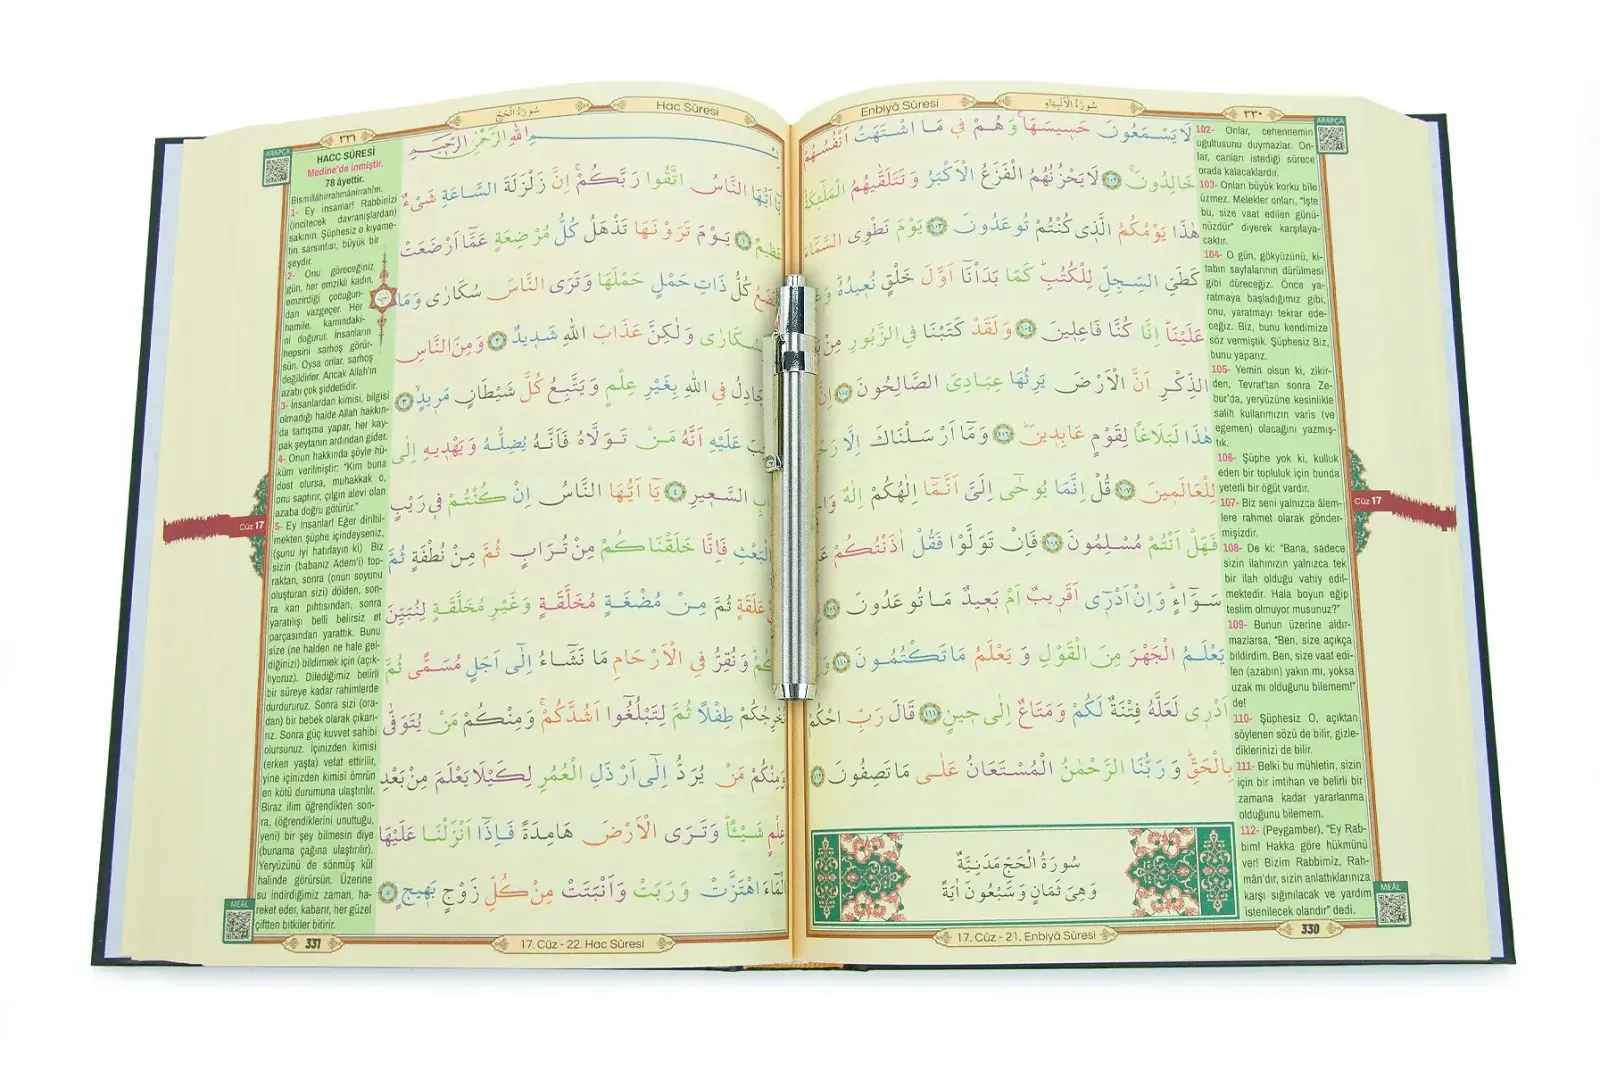 Enbiyâ Sûresi
سُورَةُ الْاَنْبِيَاءِ
٣٣٠
ARAPÇA
لَا يَسْمَعُونَ حَسِيسَهَاۚ وَهُمْ فِي مَا اشْتَهَتْ اَنْفُسُهُمْ
خَالِدُونَۚ ١٠٢ لَا يَحْزُنُهُمُ الْفَزَعُ الْاَكْبَرُ وَتَتَلَقّٰيهُمُ الْمَلٰٓئِكَةُۜ
هٰذَا يَوْمُكُمُ الَّذِي كُنْتُمْ تُوعَدُونَ ١٠٣ يَوْمَ نَطْوِي السَّمَٓاءَ
كَطَيِّ السِّجِلِّ لِلْكُتُبِۜ كَمَا بَدَأْنَٓا اَوَّلَ خَلْقٍ نُعِيدُهُۜ
عَلَيْنَاۜ اِنَّا كُنَّا فَاعِلِينَ ١٠٤ وَلَقَدْ كَتَبْنَا فِي الزَّبُورِ مِنْ
الذِّكْرِ اَنَّ الْاَرْضَ يَرِثُهَا عِبَادِيَ الصَّالِحُونَ ١٠٥ اِنَّ
هٰذَا لَبَلَاغًا لِقَوْمٍ عَابِدِينَۜ ١٠٦ وَمَٓا اَرْسَلْنَاكَ اِلَّا
لِلْعَالَمِينَ ١٠٧ قُلْ اِنَّمَا يُوحٰٓى اِلَيَّ اَنَّمَٓا اِلٰهُكُمْ اِلٰهٌ
فَهَلْ اَنْتُمْ مُسْلِمُونَ ١٠٨ فَاِنْ تَوَلَّوْا فَقُلْ اٰذَنْتُكُمْ
سَوَٓاءٍۜ وَاِنْ اَدْرِٓي اَقَرِيبٌ اَمْ بَعِيدٌ مَا تُوعَدُونَ ١٠٩
يَعْلَمُ الْجَهْرَ مِنَ الْقَوْلِ وَيَعْلَمُ مَا تَكْتُمُونَ ١١٠
اَدْرِي لَعَلَّهُ فِتْنَةٌ لَكُمْ وَمَتَاعٌ اِلٰى حِينٍ ١١١ قَالَ رَبِّ احْكُمْ
بِالْحَقِّۜ وَرَبُّنَا الرَّحْمٰنُ الْمُسْتَعَانُ عَلٰى مَا تَصِفُونَ ١١٢
سُورَةُ الْحَجِّ مَدَنِيَّةٌ
وَهِيَ ثَمَانٍ وَسَبْعُونَ اٰيَةً
102- Onlar, cehennemin
uğultusunu duymazlar. On-
lar, canları istediği sürece
orada kalacaklardır.
103- Onları büyük korku bile
üzmez. Melekler onları, "İşte
bu, size vaat edilen günü-
nüzdür" diyerek karşılaya-
caktır.
104- O gün, gökyüzünü, ki-
tabın sayfalarının dürülmesi
gibi düreceğiz. Önce ya-
ratmaya başladığımız gibi,
onu, yaratmayı tekrar ede-
ceğiz. Biz, bunu kendimize
söz vermiştik. Şüphesiz Biz,
bunu yapanz.
105- Yemin olsun ki, zikir-
den, Tevrat'tan sonra Ze-
bur'da, yeryüzüne kesinlikle
salih kullarımızın varis (ve
egemen) olacağını yazmış-
tık.
106- Şüphe yok ki, kulluk
eden bir topluluk için bunda
yeterli bir öğüt vardır.
107- Biz seni yalnızca âlem-
lere rahmet olarak gönder-
mişizdir.
108- De ki: "Bana, sadece
sizin ilahınızın yalnızca tek
bir ilah olduğu vahiy edil-
mektedir. Hala boyun eğip
teslim olmuyor musunuz?"
109- Bunun üzerine aldır-
mazlarsa, "Ben, size açıkça
bildirdim. Ben, size vaat edi-
len (azabın) yakın mı, yoksa
uzak mı olduğunu bilemem!"
de!
110- Şüphesiz O, açıktan
söylenen sözü de bilir, gizle-
diklerinizi de bilir.
111- Belki bu mühletin, sizin
için bir imtihan ve belirli bir
zamana kadar yararlanma
olduğunu bilemem.
112- (Peygamber), "Ey Rab-
bim! Hakka göre hükmünü
ver! Bizim Rabbimiz, Rah-
mân'dır, sizin anlattıklarınıza
karşı sığınılacak ve yardım
istenilecek olandır" dedi.
Cüz 17
MEÂL
17. Cüz - 21. Enbiyâ Sûresi
330
Hac Sûresi
سُورَةُ الْحَجِّ
٣٣١
ARAPÇA
اللّٰهِ الرَّحْمٰنِ الرَّحِيمِ
يَٓا اَيُّهَا النَّاسُ اتَّقُوا رَبَّكُمْۚ اِنَّ زَلْزَلَةَ السَّاعَةِ شَيْءٌ
عَظِيمٌ ١ يَوْمَ تَرَوْنَهَا تَذْهَلُ كُلُّ مُرْضِعَةٍ عَمَّٓا اَرْضَعَتْ
كُلُّ ذَاتِ حَمْلٍ حَمْلَهَا وَتَرَى النَّاسَ سُكَارٰى وَمَا
بِسُكَارٰى وَلٰكِنَّ عَذَابَ اللّٰهِ شَدِيدٌ ٢ وَمِنَ النَّاسِ
يُجَادِلُ فِي اللّٰهِ بِغَيْرِ عِلْمٍ وَيَتَّبِعُ كُلَّ شَيْطَانٍ مَرِيدٍۙ ٣
عَلَيْهِ اَنَّهُ مَنْ تَوَلَّاهُ فَاَنَّهُ يُضِلُّهُ وَيَهْدِيهِ اِلٰى
السَّعِيرِ ٤ يَٓا اَيُّهَا النَّاسُ اِنْ كُنْتُمْ فِي رَيْبٍ
الْبَعْثِ فَاِنَّا خَلَقْنَاكُمْ مِنْ تُرَابٍ ثُمَّ مِنْ نُطْفَةٍ ثُمَّ
عَلَقَةٍ ثُمَّ مِنْ مُضْغَةٍ مُخَلَّقَةٍ وَغَيْرِ مُخَلَّقَةٍ لِنُبَيِّنَ
وَنُقِرُّ فِي الْاَرْحَامِ مَا نَشَٓاءُ اِلٰٓى اَجَلٍ مُسَمًّى ثُمَّ
نُخْرِجُكُمْ طِفْلًا ثُمَّ لِتَبْلُغُٓوا اَشُدَّكُمْۚ وَمِنْكُمْ مَنْ يُتَوَفّٰى
وَمِنْكُمْ مَنْ يُرَدُّ اِلٰٓى اَرْذَلِ الْعُمُرِ لِكَيْلَا يَعْلَمَ مِنْ بَعْدِ
عِلْمٍ شَيْـًٔاۜ وَتَرَى الْاَرْضَ هَامِدَةً فَاِذَٓا اَنْزَلْنَا عَلَيْهَا
الْمَٓاءَ اهْتَزَّتْ وَرَبَتْ وَاَنْبَتَتْ مِنْ كُلِّ زَوْجٍ بَهِيجٍ ٥
HACC SÛRESİ
Medine'de inmiştir.
78 âyettir.
Bismillâhirrahmânirrahîm.
1- Ey insanlar! Rabbinizi
(incitecek davranışlardan)
sakının. Şüphesiz o kıyame-
tin sarsıntısı, büyük bir
şeydir.
2- Onu göreceğiniz
gün, her emzikli kadın,
emzirdiği çocuğun-
dan vazgeçer. Her
hamile, karnındaki-
ni doğurur. İnsanların
hepsini sarhoş görür-
sün. Oysa onlar, sarhoş
değildirler. Ancak Allah'ın
azabı çok şiddetlidir.
3- İnsanlardan kimisi, bilgisi
olmadığı halde Allah hakkın-
da tartışma yapar, her kay-
pak şeytanın ardından gider.
4- Onun hakkında şöyle hü-
küm verilmiştir: "Kim buna
dost olursa, muhakkak o,
onu saptırır, çılgın alevi olan
azaba doğru götürür."
5- Ey insanlar! Eğer diriltil-
mekten şüphe içindeyseniz,
(şunu iyi hatırlayın ki) Biz
sizin (babanız Adem'i) top-
raktan, sonra (onun soyunu
oluşturan sizi) dölden, son-
ra kan pıhtısından, sonra
yaratılışı belli belirsiz et
parçasından yarattık. Bunu
size (ne halden ne hale gel-
diğinizi) bildirmek için (açık-
lıyoruz). Dilediğimiz belirli
bir süreye kadar rahimlerde
durdururuz. Sonra sizi (ora-
dan) bir bebek olarak çıkarı-
rız. Sonra güç kuvvet sahibi
olursunuz. İçinizden kimisi
(erken yaşta) vefat ettirilir,
yine içinizden kimisi ömrün
en kötü durumuna ulaştırılır.
Biraz ilim öğrendikten son-
ra, (öğrendiklerini unuttuğu,
yeni) bir şey bilmesin diye
(bunama çağına ulaştırılır).
Yeryüzünü de sönmüş kül
halinde görürsün. Üzerine
su indirdiğimiz zaman, ha-
reket eder, kabarır, her güzel
çiftten bitkiler bitirir.
Cüz 17
MEÂL
331
17. Cüz - 22. Hac Sûresi